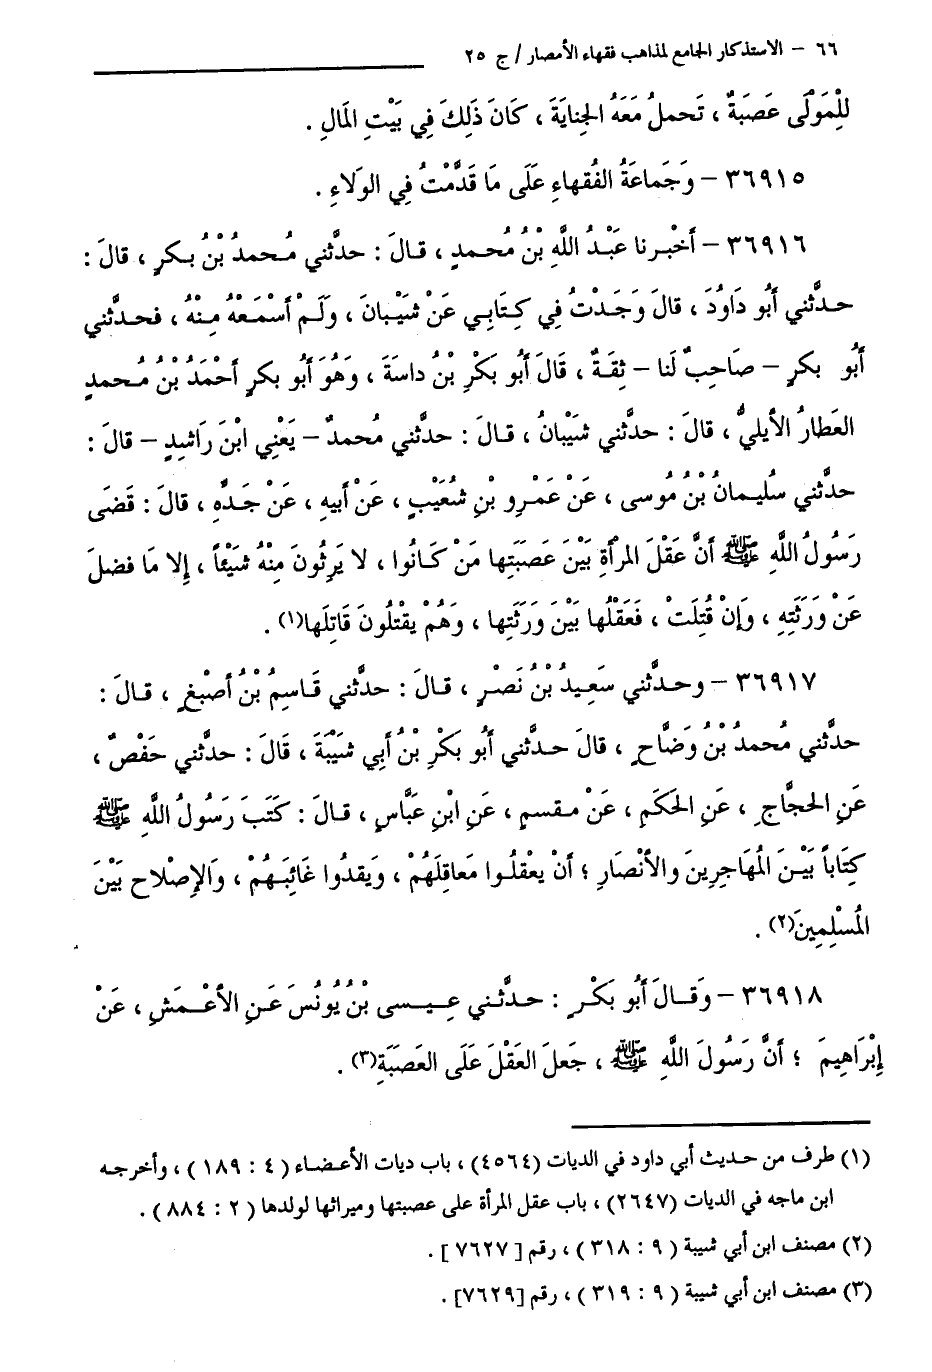 ٦٦ – الاستذكار الجامع لمذاهب فقهاء الأمصار / ج ٢٥
لِلْمَوْلَى عَصَبَةٌ ، تَحملُ مَعَهُ الجِنايَةَ ، كَانَ ذَلِكَ فِي بَيْتِ المَالِ .
٣٦٩١٥ – وَجَماعَةُ الفُقهاءِ عَلَى مَا قَدَّمْتُ فِي الوَلاءِ .
٣٦٩١٦ – أَخْبرنا عَبْدُ اللَّهِ بْنُ مُحمدٍ ، قالَ : حدَّثني مُحمدُ بْنُ بكرٍ ، قالَ :
حدَّثني أَبُو دَاوُدَ ، قالَ وَجَدْتُ فِي كِتَابِي عَنْ شَيْبانَ ، وَلَمْ أَسْمَعْهُ مِنْهُ ، فحدثني
أَبُو بكرٍ – صَاحِبٌ لَنا – ثِقَةٌ ، قَالَ أَبُو بَكْرِ بْنُ داسَةَ ، وَهُوَ أَبو بكرٍ أَحْمَدُ بْنُ مُحمدٍ
العَطارُ الأيليُّ ، قالَ : حدَّثني شَيْبانُ ، قالَ : حدَّثني مُحمدٌ – يَعْنِي ابْنَ رَاشِدٍ – قالَ :
حدَّثني سُليمانُ بْنُ مُوسى ، عَنْ عَمْرِو بْنِ شُعَيْبٍ ، عَنْ أَبيهِ ، عَنْ جَدِّهِ ، قالَ : قَضَى
رَسُولُ اللَّهِ ﷺ أَنَّ عَقْلَ المرْأَةِ بَيْنَ عَصَبَتِها مَنْ كَانُوا ، لا يَرِثُونَ مِنْهُ شَيْئاً ، إِلا مَا فضلَ
عَنْ وَرَثَتِهِ ، وَإِنْ قُتِلَتْ ، فَعَقْلُها بَيْنَ وَرَثَتِها ، وَهُمْ يقْتُلُونَ قَاتِلَها(١) .
٣٦٩١٧ – وحدَّثني سَعِيدُ بْنُ نَصْرٍ ، قالَ : حدَّثني قَاسِمُ بْنُ أصْبغٍ ، قالَ :
حدَّثني مُحمدُ بْنُ وَضَّاحٍ ، قالَ حدَّثني أَبُو بكْرِ بْنُ أَبِي شَيْبَةَ ، قَالَ : حدَّثني حَفْصٌ ،
عَنِ الحجَّاجِ ، عَنِ الحَكَمِ ، عَنْ مقسمٍ ، عَنِ ابْنِ عَبَّاسٍ ، قالَ : كَتَبَ رَسُولُ اللَّهِ ﷺ
كِتَاباً بَيْنَ المُهَاجِرِينَ والأنْصَارِ ؛ أَنْ يعْقلُوا مَعاقِلَهُمْ ، وَيَفدُوا غَائِبَهُمْ ، وَالإِصْلاح بَيْنَ
المُسْلِمِينَ(٢) .
٣٦٩١٨ – وَقالَ أَبُو بَكْرٍ : حدَّثني عِيسى بْنُ يُونُسَ عَنِ الأعْمَشِ ، عَنْ
إِبْرَاهِيمَ ؛ أَنَّ رَسُولَ اللَّهِ ﷺ ، جَعلَ العَقْلَ عَلَى العَصَبَةِ(٣) .
(١) طرف من حديث أبي داود في الديات (٤٥٦٤) ، باب ديات الأعضاء ( ٤ : ١٨٩ ) ، وأخرجه
ابن ماجه في الديات (٢٦٤٧) ، باب عقل المرأة على عصبتها وميراثها لولدها ( ٢ : ٨٨٤ ) .
(٢) مصنف ابن أبي شيبة ( ٩ : ٣١٨ ) ، رقم [ ٧٦٢٧ ] .
(٣) مصنف ابن أبي شيبة ( ٩ : ٣١٩ ) ، رقم [٧٦٢٩] .